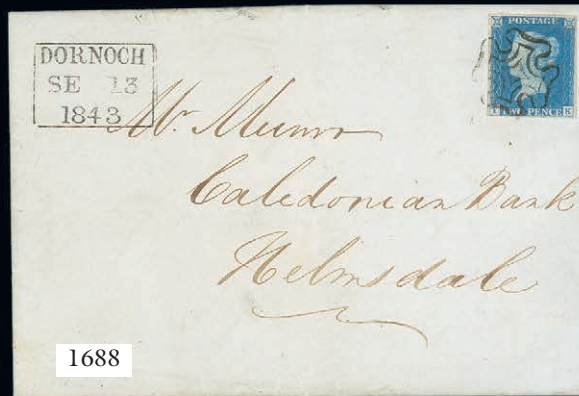 DORNOCH
SE 13
1843
POSTAGE
TWO PENCE
K
Mr. Munro
Caledonian Bank
Helmsdale
1688